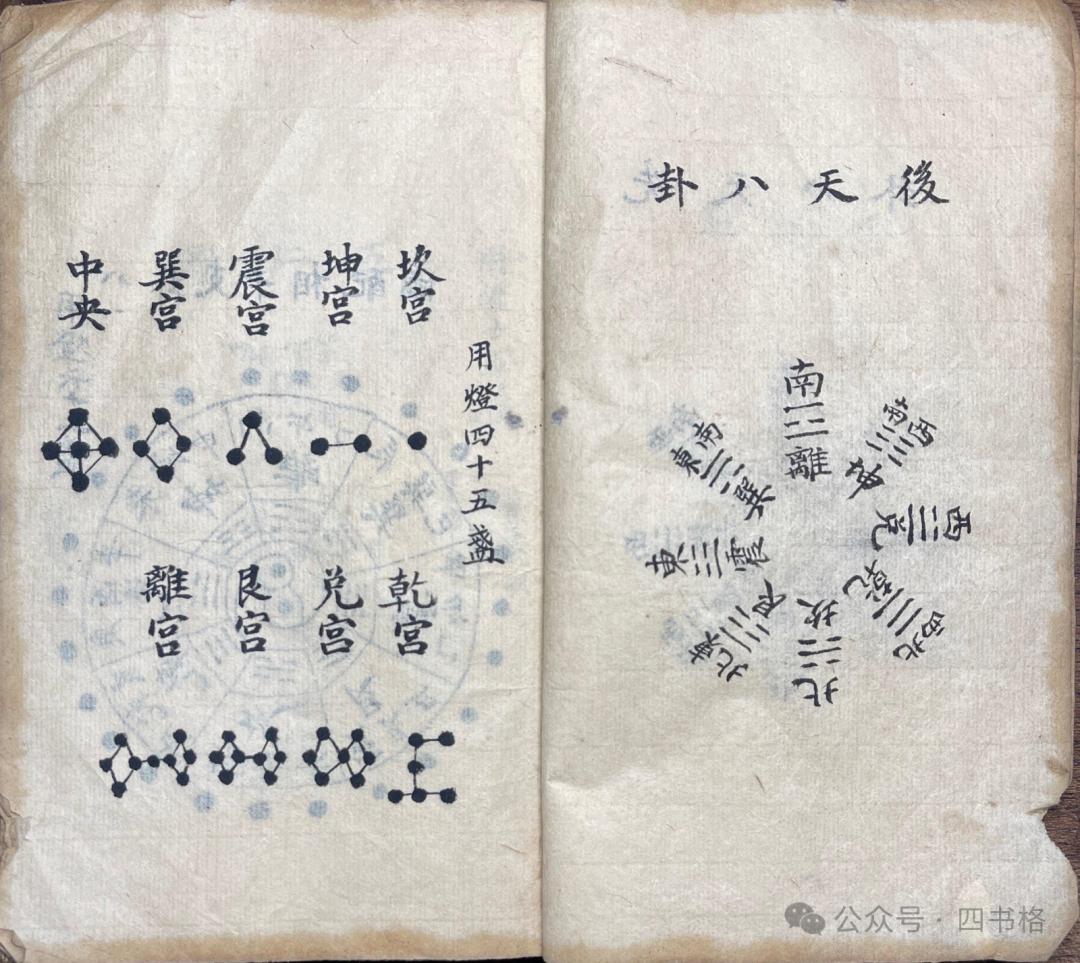 後天八卦
南
離
西南
坤
西
兌
西北
乾
北
坎
東北
艮
東
震
東南
巽
用燈四十五盞
坎宮
坤宮
震宮
巽宮
中央
乾宮
兌宮
艮宮
離宮
公众号·四书格